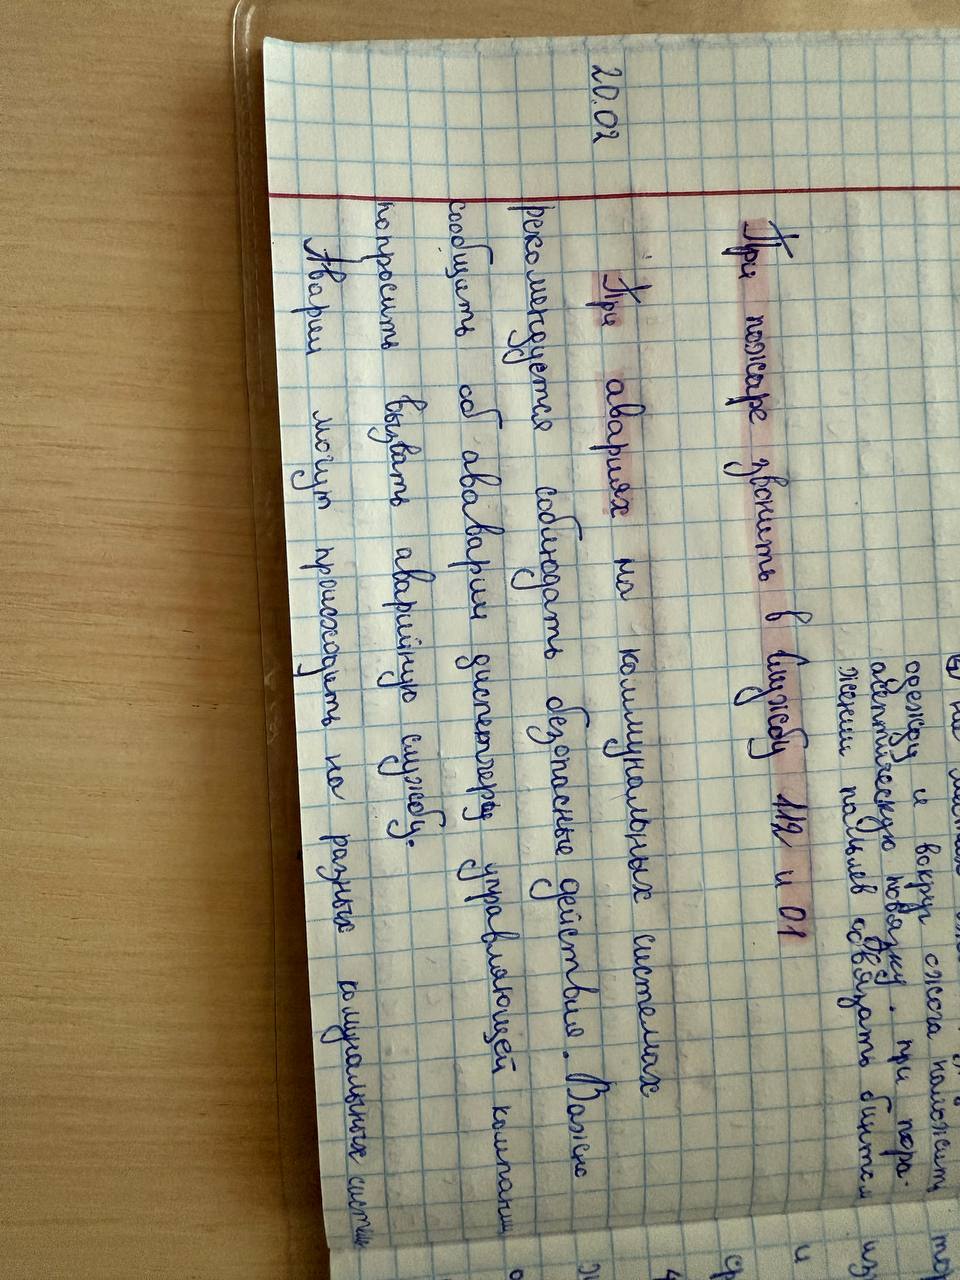 одежду и вокруг ожога наложить
асептическую повязку. при пора-
жении пальцев обвязать бинтом
При пожаре звонить в Службу 112 и 01
20.02
При авариях на коммунальных системах
рекомендуется соблюдать безопасные действия. Важно
сообщить об ававарии диспетчеру управляющей компании
попросить вызвать аварийную службу.
Аварии могут происходить на разных комунальных систем